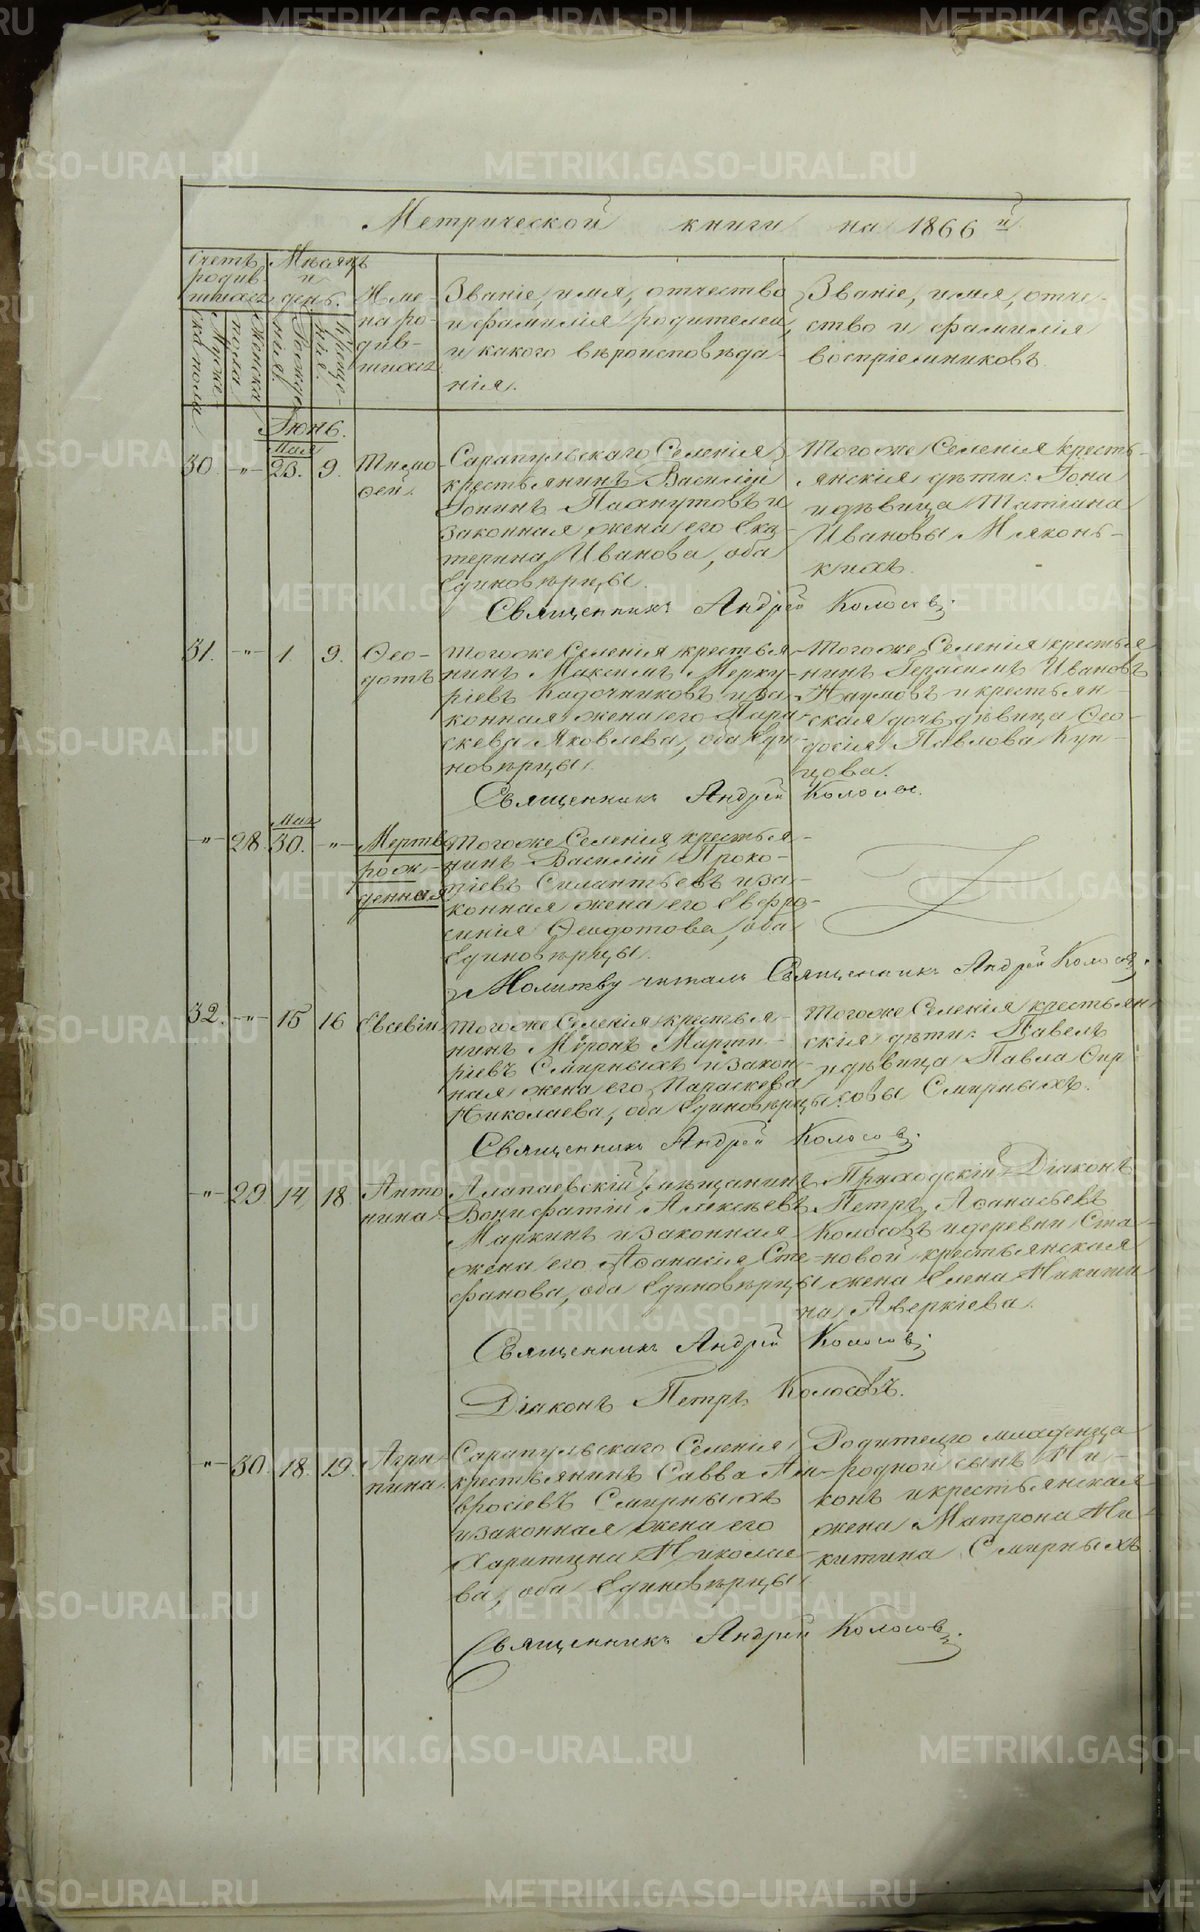 Метрической книги на 1866 й
Счетъ родив- шихся.
Мѣсяцъ и день.
Име- на ро- див- шихся
Званіе, имя, отчество
и фамилія родителей,
и какого вѣроисповѣда-
нія.
Званіе, имя, отче-
ство и фамилія
воспріемниковъ
Муже- ска пола
Женска пола
Рожде- нія.
Креще- нія.
Іюнь.
30. -"- Мая 23. 9. Тимо-
фей.
Сарапульскаго Селенія
крестьянинъ Василій
Іонинъ Пахнутовъ и
законная жена его Ека-
терина Иванова, оба
Единовѣрцы.
Тогоже Селенія кресть-
янскія дѣти: Іона
и дѣвица Татіана
Ивановы Мяконь-
кихъ.
Священникъ Андрей Колосовъ.
31. -"- 1. 9. Ѳео-
дотъ
Тогоже Селенія крестья-
нинъ Максимъ Мерку-
ріевъ Кадочниковъ и за-
конная жена его Пара-
скева Яковлева, оба Еди-
новѣрцы.
Тогоже Селенія крестья-
нинъ Герасимъ Ивановъ
Наумовъ и крестьян-
ская дочь дѣвица Ѳео-
досія Павлова Куп-
цова.
Священникъ Андрей Колосовъ.
-"- 28. Мая 30. -"- Мертво
рож-
денная
Тогоже Селенія крестья-
нинъ Василій Проко-
піевъ Силантьевъ и за-
конная жена его Евфро-
синія Ѳеодотова, оба
Единовѣрцы.
Молитву читалъ Священникъ Андрей Колосовъ.
32. -"- 15 16 Евсевій
Тогоже Селенія крестья-
нинъ Миронъ Марти-
ріевъ Смирныхъ и закон-
ная жена его Параскева
Николаева, оба Единовѣрцы.
Тогоже Селенія крестьян-
скія дѣти: Павелъ
и дѣвица Павла Фир-
совы Смирныхъ.
Священникъ Андрей Колосовъ.
-"- 29. 14 18. Анто
нина
Алапаевскій мѣщанинъ
Вонифатій Алексѣевъ
Маркинъ и законная
жена его Аѳанасія Сте-
фанова, оба Единовѣрцы
Приходскій Діаконъ
Петръ Аѳанасьевъ
Колосовъ и деревни Ста-
новой крестьянская
жена Елена Никити-
на Аверкіева.
Священникъ Андрей Колосовъ.
Діаконъ Петръ Колосовъ.
-"- 30. 18. 19. Агри-
пина
Сарапульскаго Селенія
крестьянинъ Савва Ам-
вросіевъ Смирныхъ
и законная жена его
Харитина Николае-
ва, оба Единовѣрцы
Родителю младенца
родной сынъ Ни-
конъ и крестьянская
жена Матрона Ни-
китина Смирныхъ
Священникъ Андрей Колосовъ.